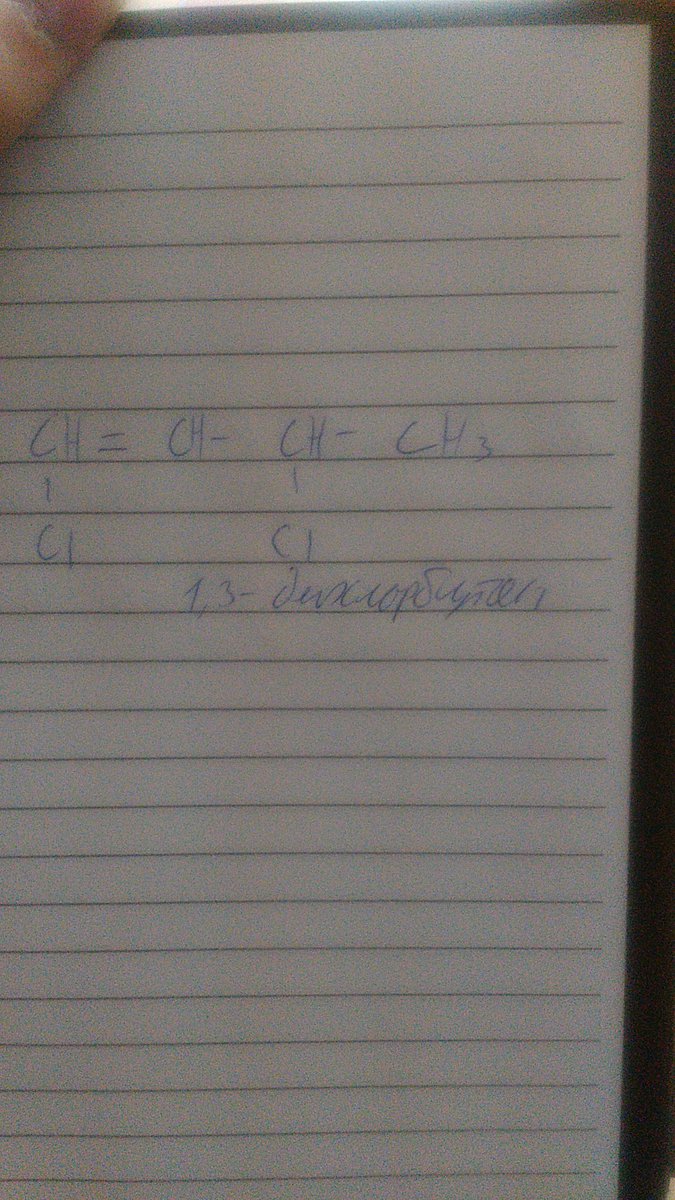 CH= CH- CH- CH3
| |
Cl Cl
1,3- дихлорбутен1